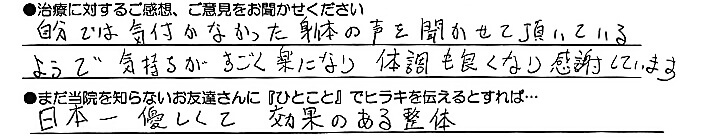 ●治療に対するご感想、ご意見をお聞かせください
自分では気付かなかった身体の声を聞かせて頂いている
ようで 気持ちがすごく楽になり 体調も良くなり感謝しています
●まだ当院を知らないお友達さんに『ひとこと』でヒラキを伝えるとすれば…
日本一 優しくて 効果のある整体